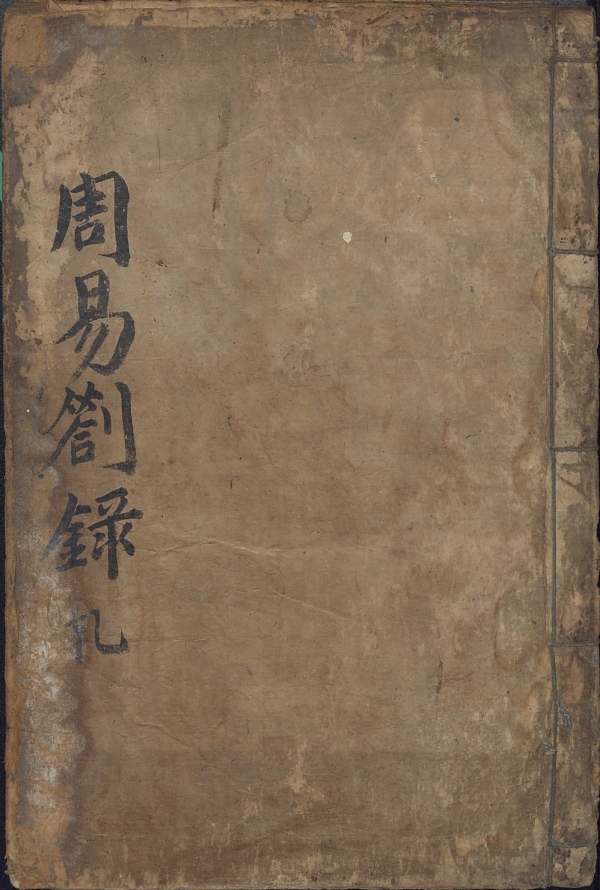 周易劄錄